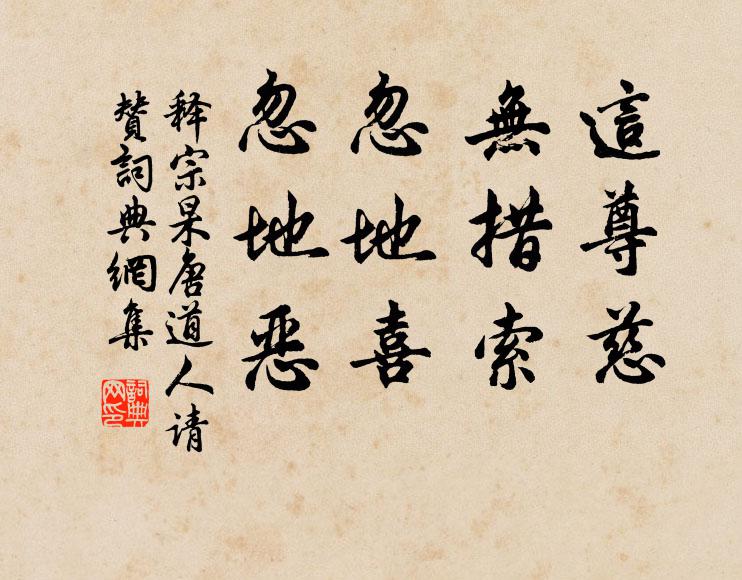 這尊慈
無措索
忽地喜
忽地惡
释宗杲唐道人请
贊詞典網集
詞典
网印